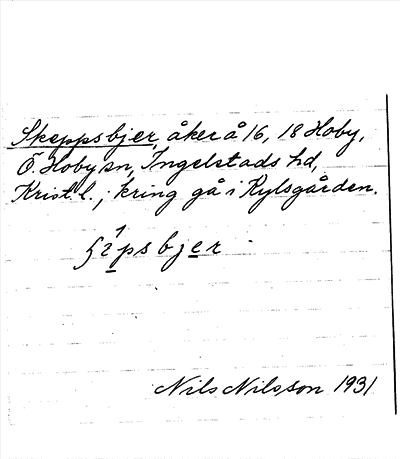 Skeppsbjer, åker å 16, 18 Hoby,
Ö. Hoby sn, Ingelstads hd,
Krist. l.; kring gå i Kylsgården.
psbjer
Nils Nilsson 1931